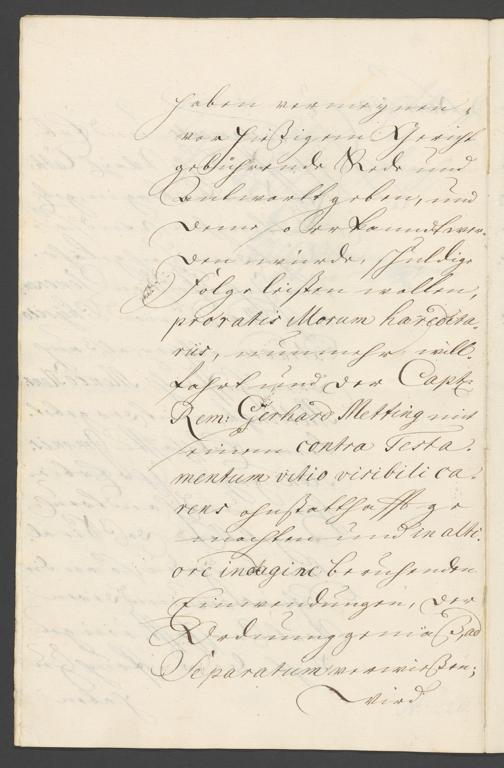 haben vermeynen,
vor hießigem Gericht
gebührende Rede und
Antwortt geben, und
deme so erkanndt wer-
den würde, schuldige
Folge leisten wollen,
pro ratis Morum haredita-
riis, nunmehr will-
fahrt und der Capt:
Rem: Gerhard Metting mit
seinem contra Testa-
mentum vitio visibili ca-
rens ohnstatthafft ge
machten und in alti-
ore indagine beruhenden
Einwendungen, der
Ordnung gemäß ad
Separatum verwießen;
wird